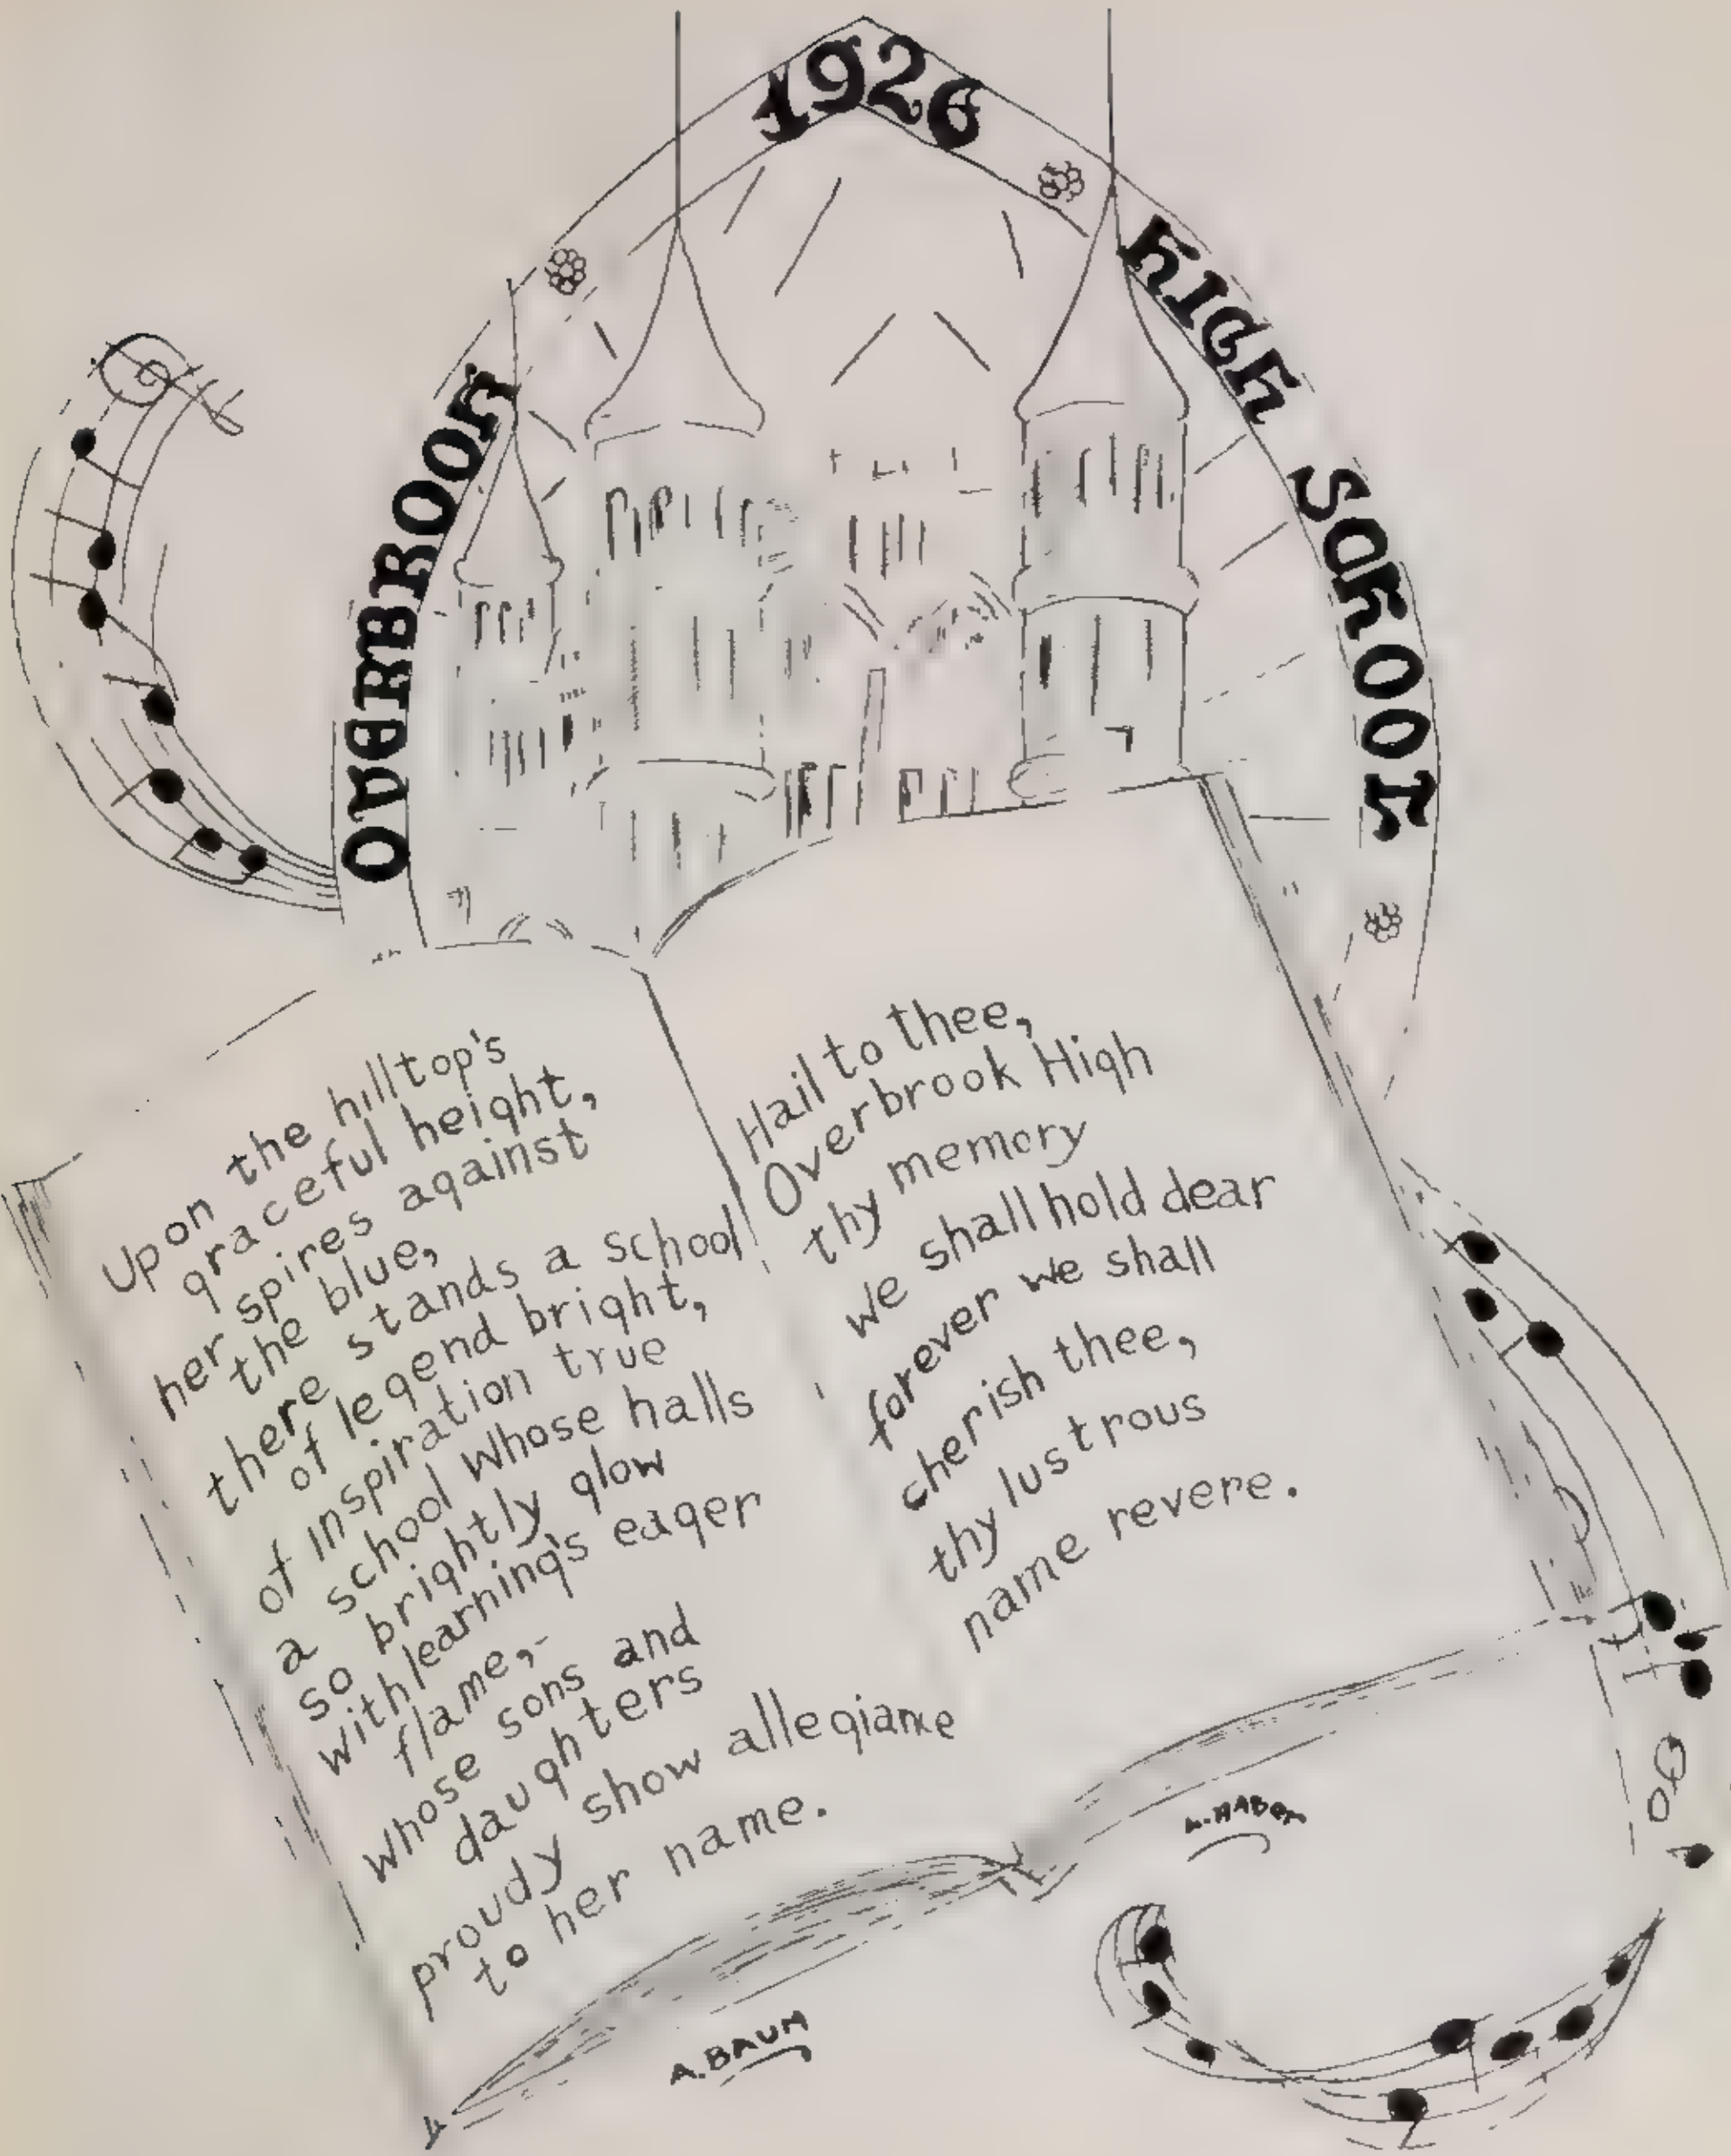 OVERBROOK 1926 HIGH SCHOOL
Upon the hilltop's
graceful height,
her spires against
the blue,
there stands a school
of legend bright,
of inspiration true
a school whose halls
so brightly glow
with learning's eager
flame,-
whose sons and
daughters
proudy show allegiance
to her name.
Hail to thee,
Overbrook High
thy memory
we shall hold dear
forever we shall
cherish thee,
thy lustrous
name revere.
A. BAUM
L. HABER